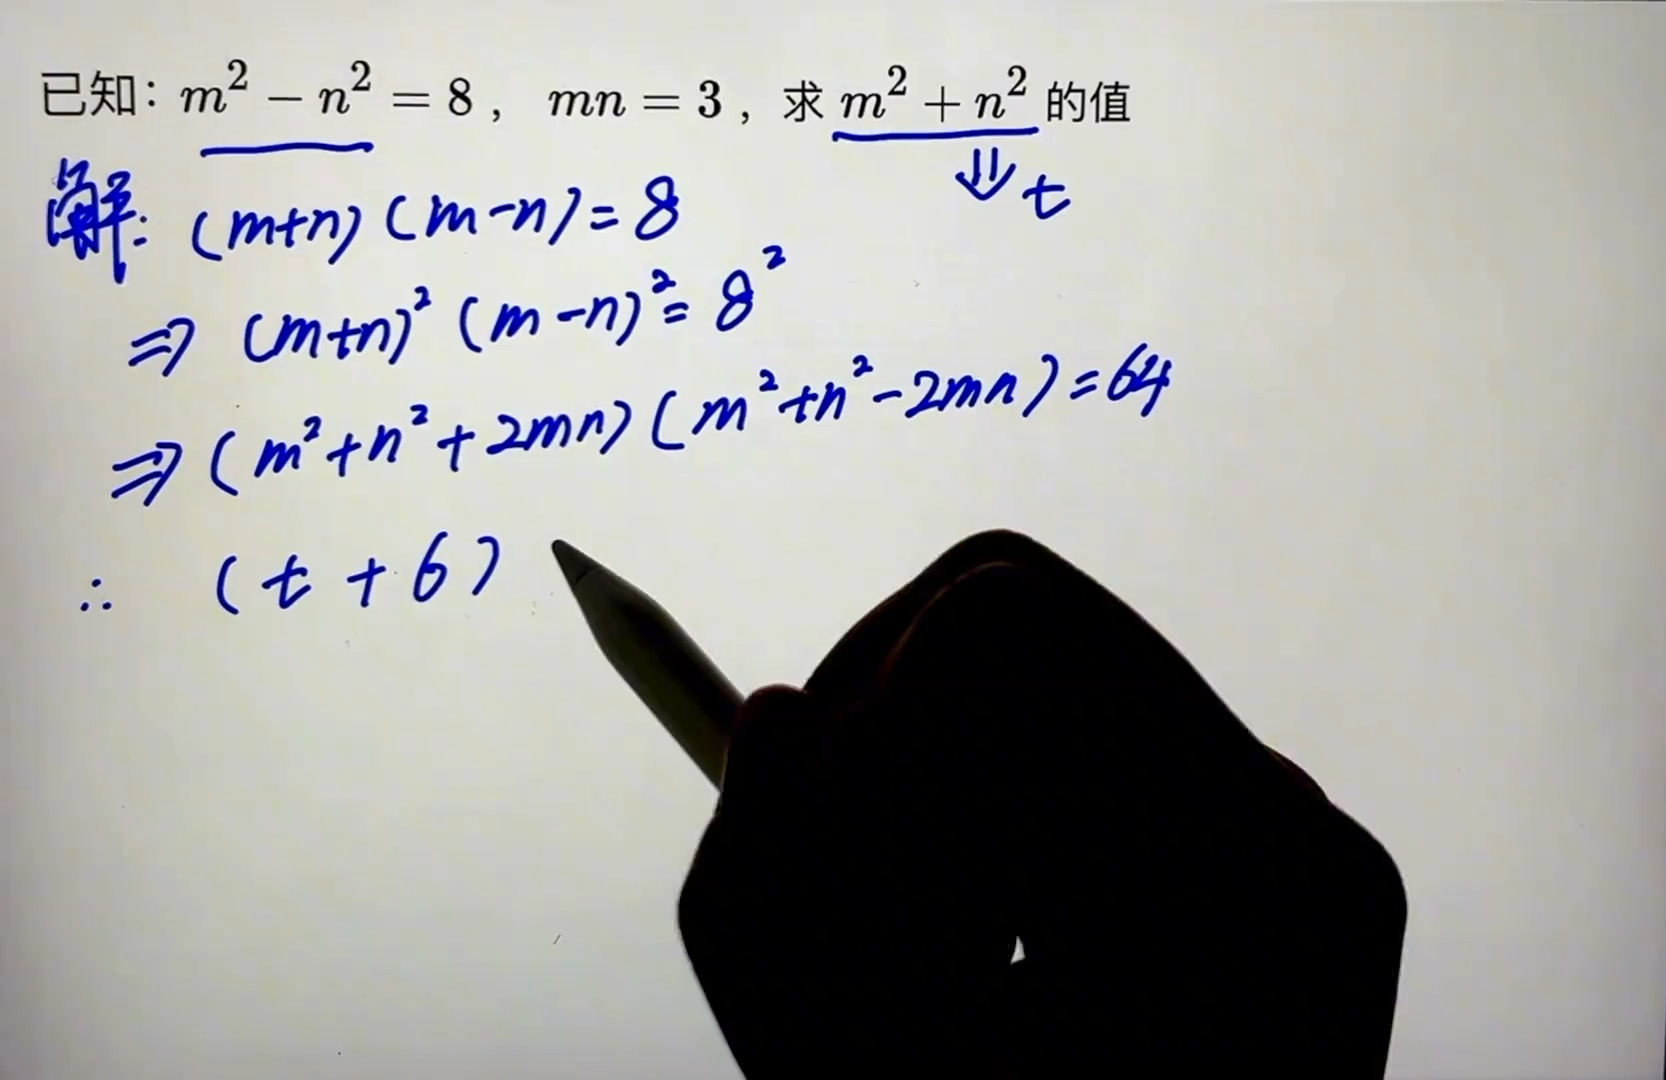 已知：m² − n² = 8， mn = 3，求 m² + n² 的值
⇓ t
解: (m+n)(m-n)=8
⇒ (m+n)²(m-n)²=8²
⇒ (m²+n²+2mn)(m²+n²-2mn)=64
∴ (t+6)